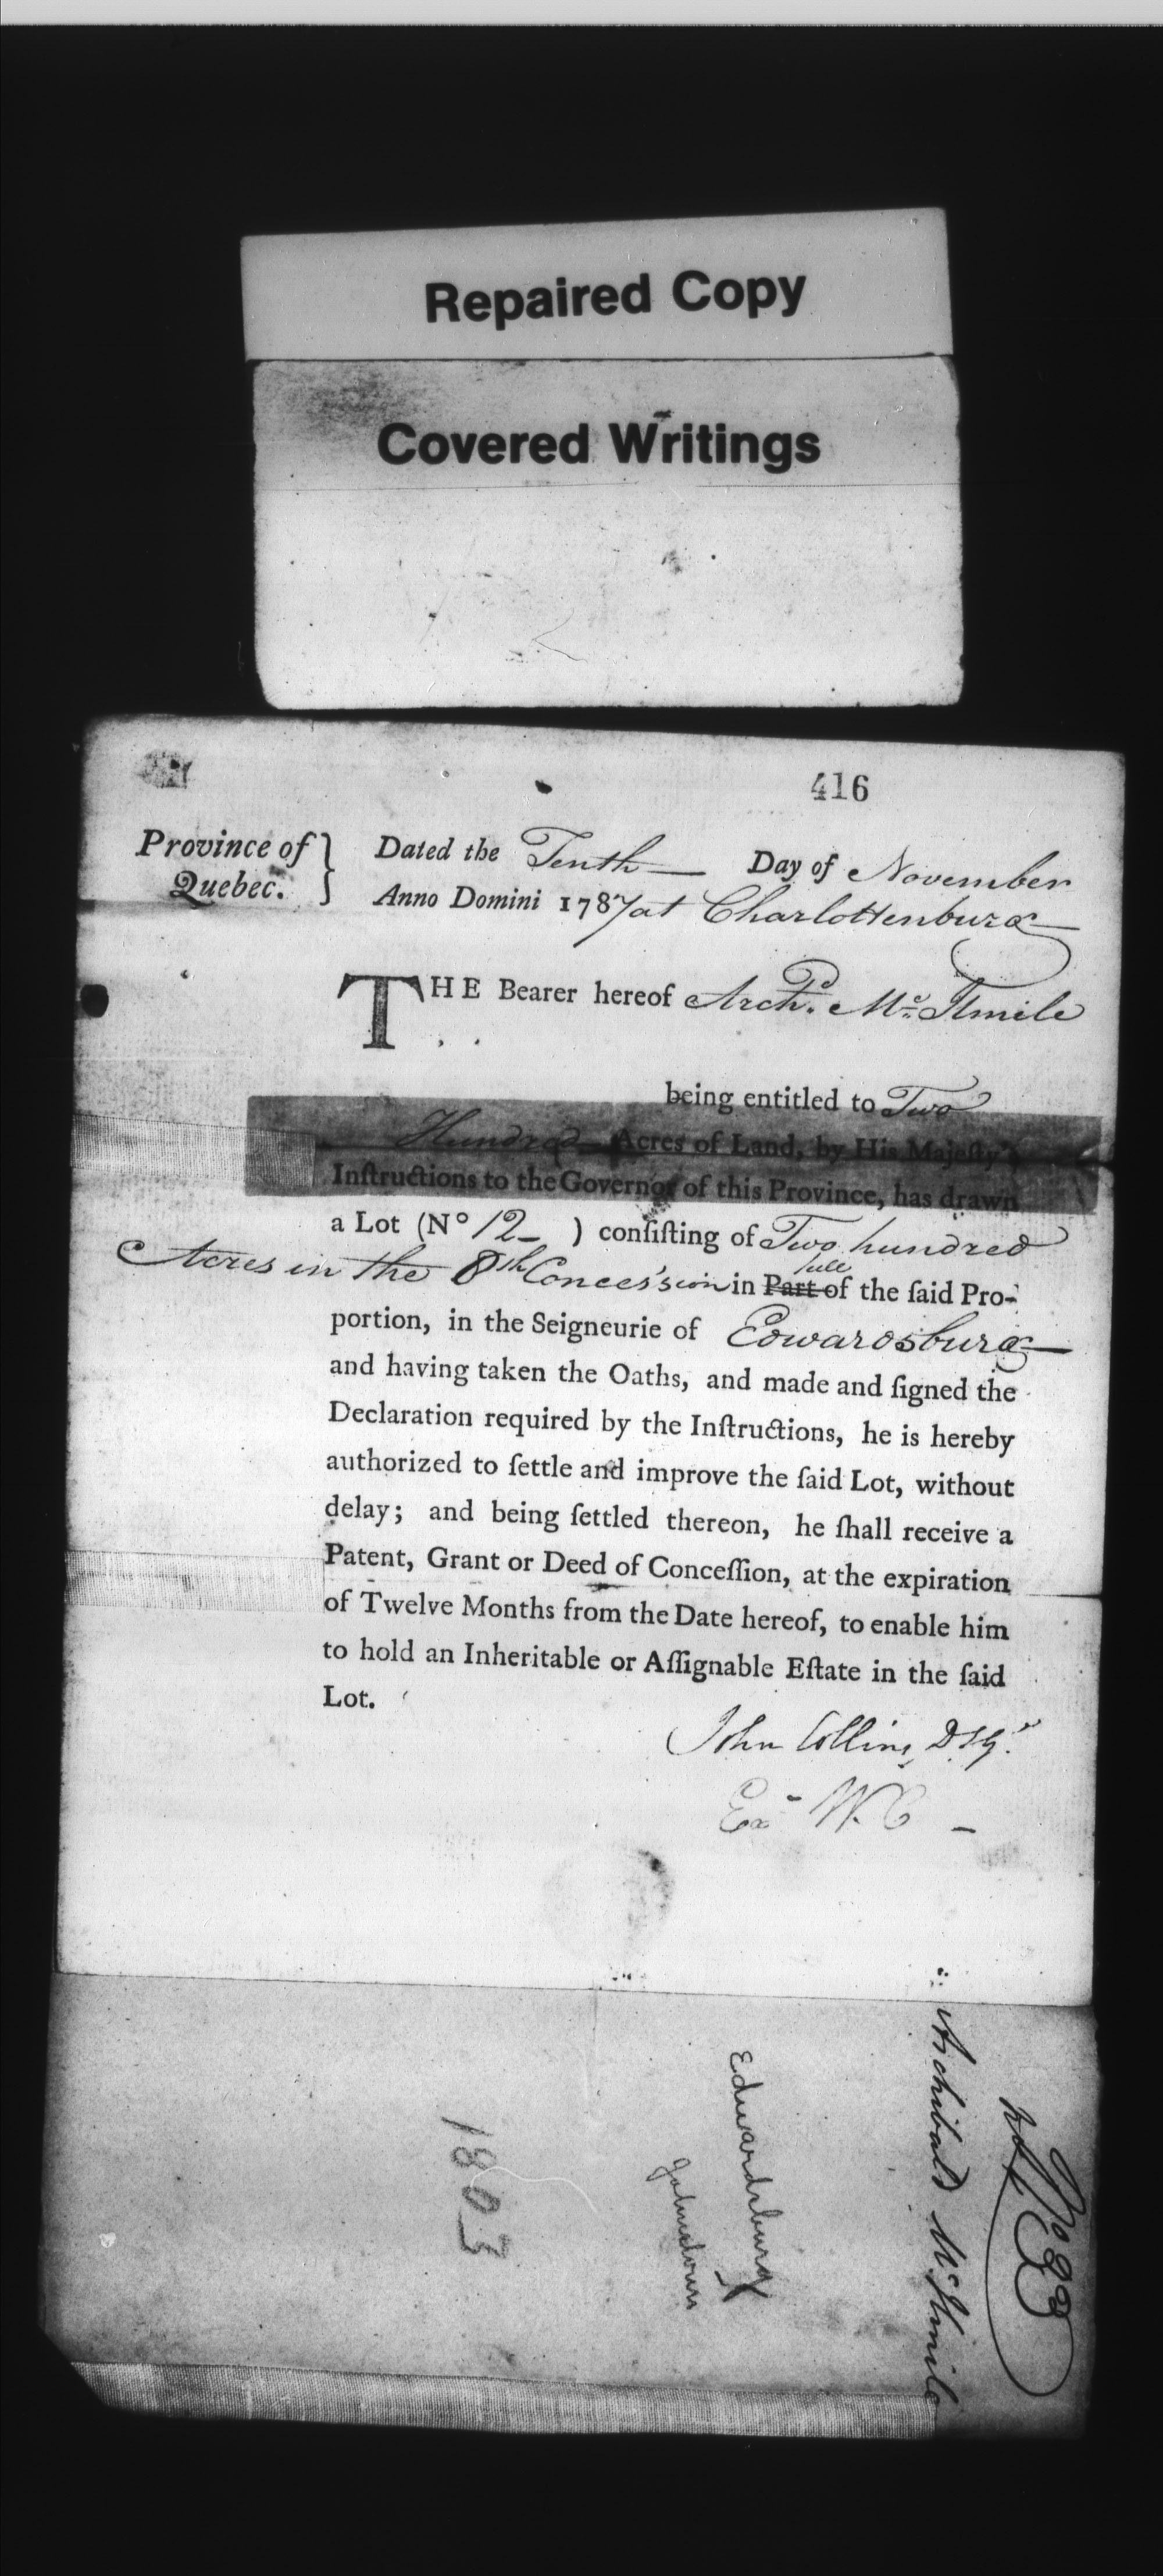 Repaired Copy
Covered Writings
416
Province of Quebec. } Dated the Tenth — Day of November
Anno Domini 1787 at Charlottenburg
THE Bearer hereof Archd. Mc. Ilmile
being entitled to Two
Hundred Acres of Land, by His Majesty's
Inſtructions to the Governor of this Province, has drawn
a Lot (No 12 ) conſiſting of Two hundred
Acres in the 8th Concession in Part full of the ſaid Pro-
portion, in the Seigneurie of Edwardsburg
and having taken the Oaths, and made and ſigned the
Declaration required by the Inſtructions, he is hereby
authorized to ſettle and improve the ſaid Lot, without
delay; and being ſettled thereon, he ſhall receive a
Patent, Grant or Deed of Conceſſion, at the expiration
of Twelve Months from the Date hereof, to enable him
to hold an Inheritable or Aſſignable Eſtate in the ſaid
Lot.
John Collins D S G.
Ex W. C
Archibald McIlmile
Edwardsburg
Johnstown
1803